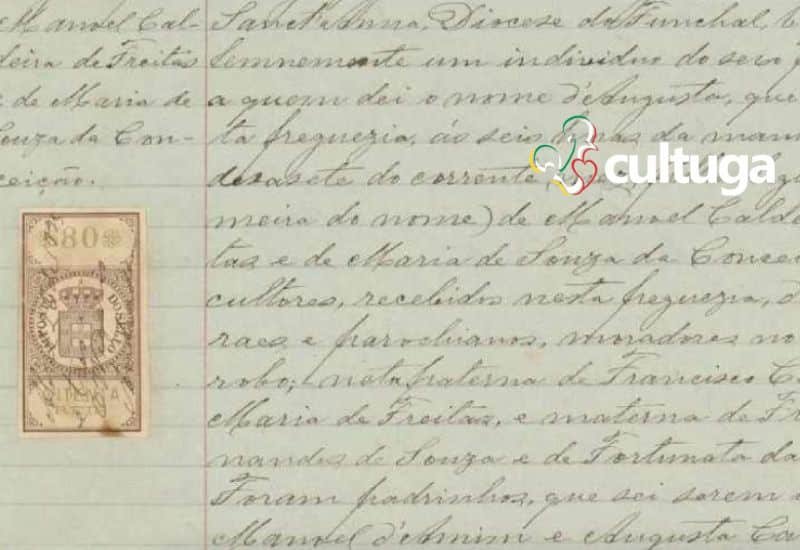 Manoel Cal-
deira de Freitas
e de Maria de
Souza da Con-
ceição.
80
IMPOSTO DO SELLO
Sanct'Anna, Diocese do Funchal, b
lemnemente um individuo do sexo f
a quem dei o nome d'Augusta, que
ta freguezia, ás seis horas da man
desasete do corrente
meira do nome) de Manoel Calde
tas e de Maria de Souza da Concei
cultores, recebidos nesta freguezia, d
raes e parochianos, moradores no
robo; neta paterna de Francisco C
Maria de Freitas, e materna de Fr
nandes de Souza e de Fortunata da
Foram padrinhos, que sei serem o
Manoel d'Amim e Augusta Ca
cultuga